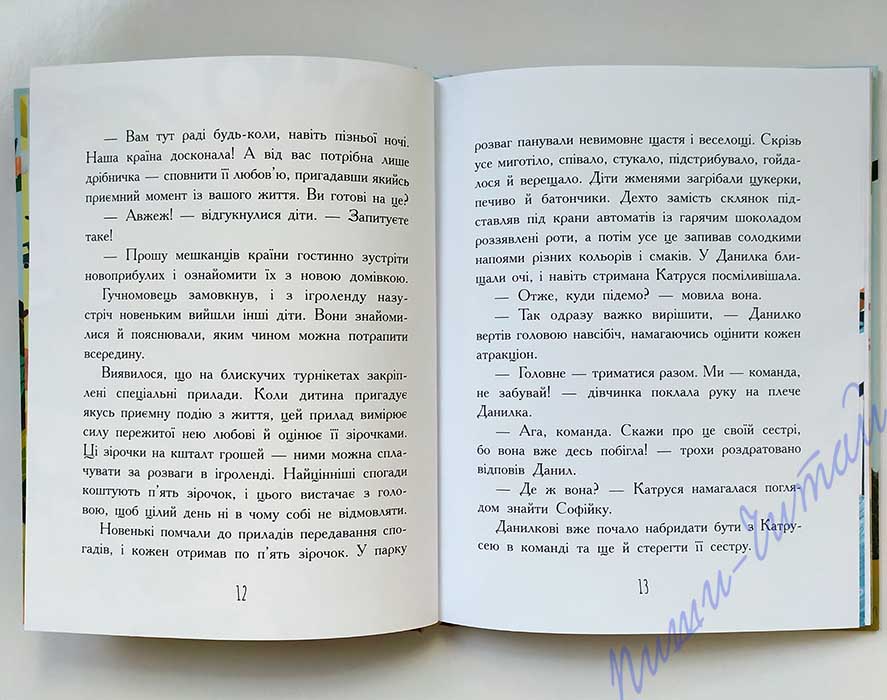 — Вам тут раді будь-коли, навіть пізньої ночі.
Наша країна досконала! А від вас потрібна лише
дрібничка — сповнити її любов’ю, пригадавши якийсь
приємний момент із вашого життя. Ви готові на це?
— Авжеж! — відгукнулися діти. — Запитуєте
таке!
— Прошу мешканців країни гостинно зустріти
новоприбулих і ознайомити їх з новою домівкою.
Гучномовець замовкнув, і з ігроленду назу-
стріч новеньким вийшли інші діти. Вони знайоми-
лися й пояснювали, яким чином можна потрапити
всередину.
Виявилося, що на блискучих турнікетах закріп-
лені спеціальні прилади. Коли дитина пригадує
якусь приємну подію з життя, цей прилад вимірює
силу пережитої нею любові й оцінює її зірочками.
Ці зірочки на кшталт грошей — ними можна спла-
чувати за розваги в ігроленді. Найцінніші спогади
коштують п’ять зірочок, і цього вистачає з голо-
вою, щоб цілий день ні в чому собі не відмовляти.
Новенькі помчали до приладів передавання спо-
гадів, і кожен отримав по п’ять зірочок. У парку
12
розваг панували невимовне щастя і веселощі. Скрізь
усе миготіло, співало, стукало, підстрибувало, гойда-
лося й верещало. Діти жменями загрібали цукерки,
печиво й батончики. Дехто замість склянок під-
ставляв під крани автоматів із гарячим шоколадом
роззявлені роти, а потім усе це запивав солодкими
напоями різних кольорів і смаків. У Данилка бли-
щали очі, і навіть стримана Катруся посміливішала.
— Отже, куди підемо? — мовила вона.
— Так одразу важко вирішити, — Данилко
вертів головою навсібіч, намагаючись оцінити кожен
атракціон.
— Головне — триматися разом. Ми — команда,
не забувай! — дівчинка поклала руку на плече
Данилка.
— Ага, команда. Скажи про це своїй сестрі,
бо вона вже десь побігла! — трохи роздратовано
відповів Данил.
— Де ж вона? — Катруся намагалася погля-
дом знайти Софійку.
Данилкові вже почало набридати бути з Катру-
сею в команді та ще й стерегти її сестру.
13
Пиши-Читай